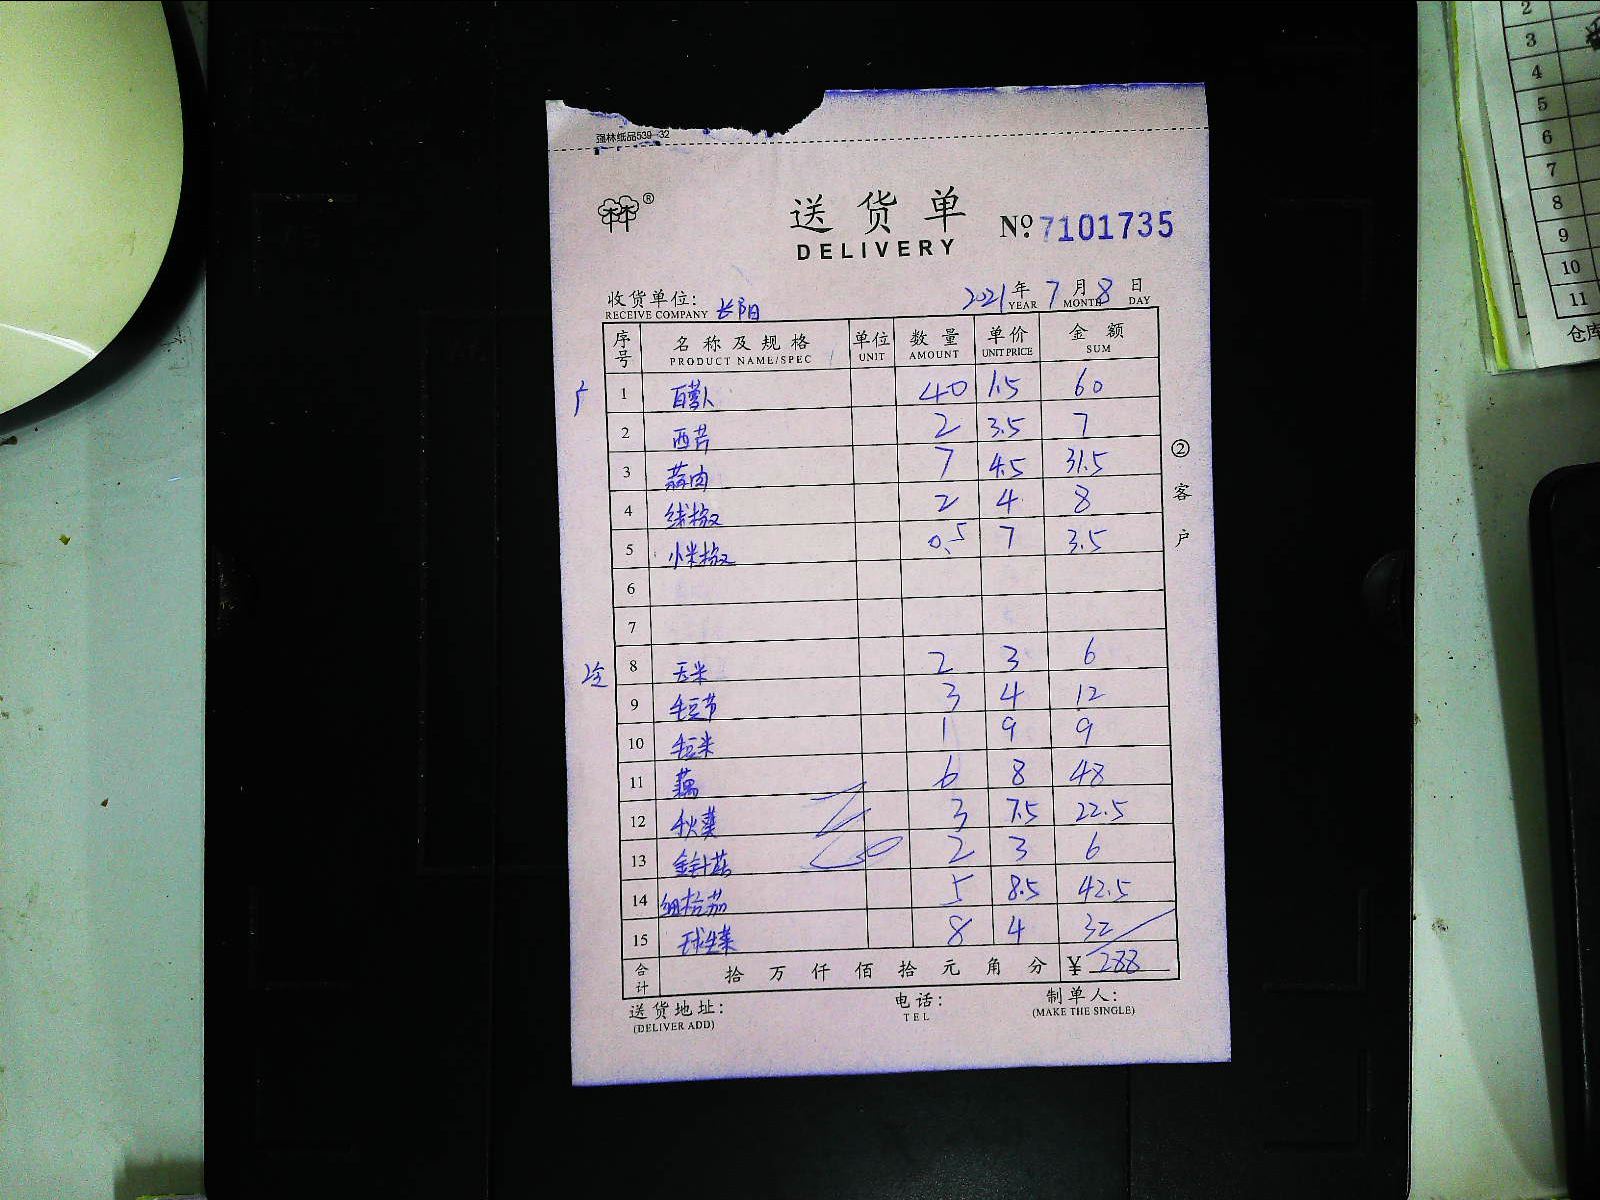 强林纸品539-32
®
送货单
DELIVERY
№ 7101735
收货单位: 长阳 2021年 7月 8日
RECEIVE COMPANY YEAR MONTH DAY
序号 名称及规格 单位 数量 单价 金额
PRODUCT NAME/SPEC UNIT AMOUNT UNIT PRICE SUM
1 白萝卜 40 1.5 60
2 西芹 2 3.5 7
3 蒜肉 7 4.5 31.5
4 线椒 2 4 8
5 小米椒 0.5 7 3.5
6
7
冷 8 玉米 2 3 6
9 毛豆节 3 4 12
10 毛豆米 1 9 9
11 藕 6 8 48
12 秋葵 3 7.5 22.5
13 金针菇 2 3 6
14 细杭茄 5 8.5 42.5
15 球生菜 8 4 32
合计 拾 万 仟 佰 拾 元 角 分 ¥ 288
送货地址: 电话: 制单人:
(DELIVER ADD) TEL (MAKE THE SINGLE)
②客户
2
3
4
5
6
7
8
9
10
11
仓库